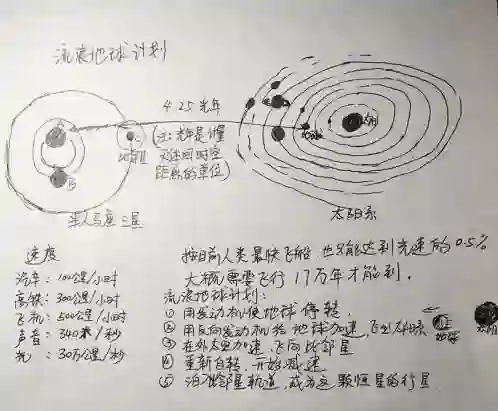 流浪地球计划
4.25光年
A
B
地球
(注:光年是计量
天体间时空
距离的单位)
太阳
地球
半人马座三星
太阳系
速度
汽车:100公里/小时
高铁:300公里/小时
飞机:500公里/小时
声音:340米/秒
光:30万公里/秒
按目前人类最快飞船 也只能达到光速的0.5%
大概需要飞行17万年才能到.
流浪地球计划:
① 用发动机使地球停转
② 用反向发动机给地球加速,飞出太阳系
③ 在外太空加速,飞向比邻星
④ 重新自转,开始减速
⑤ 泊入比邻星轨道,成为这颗恒星的行星
地球
太阳